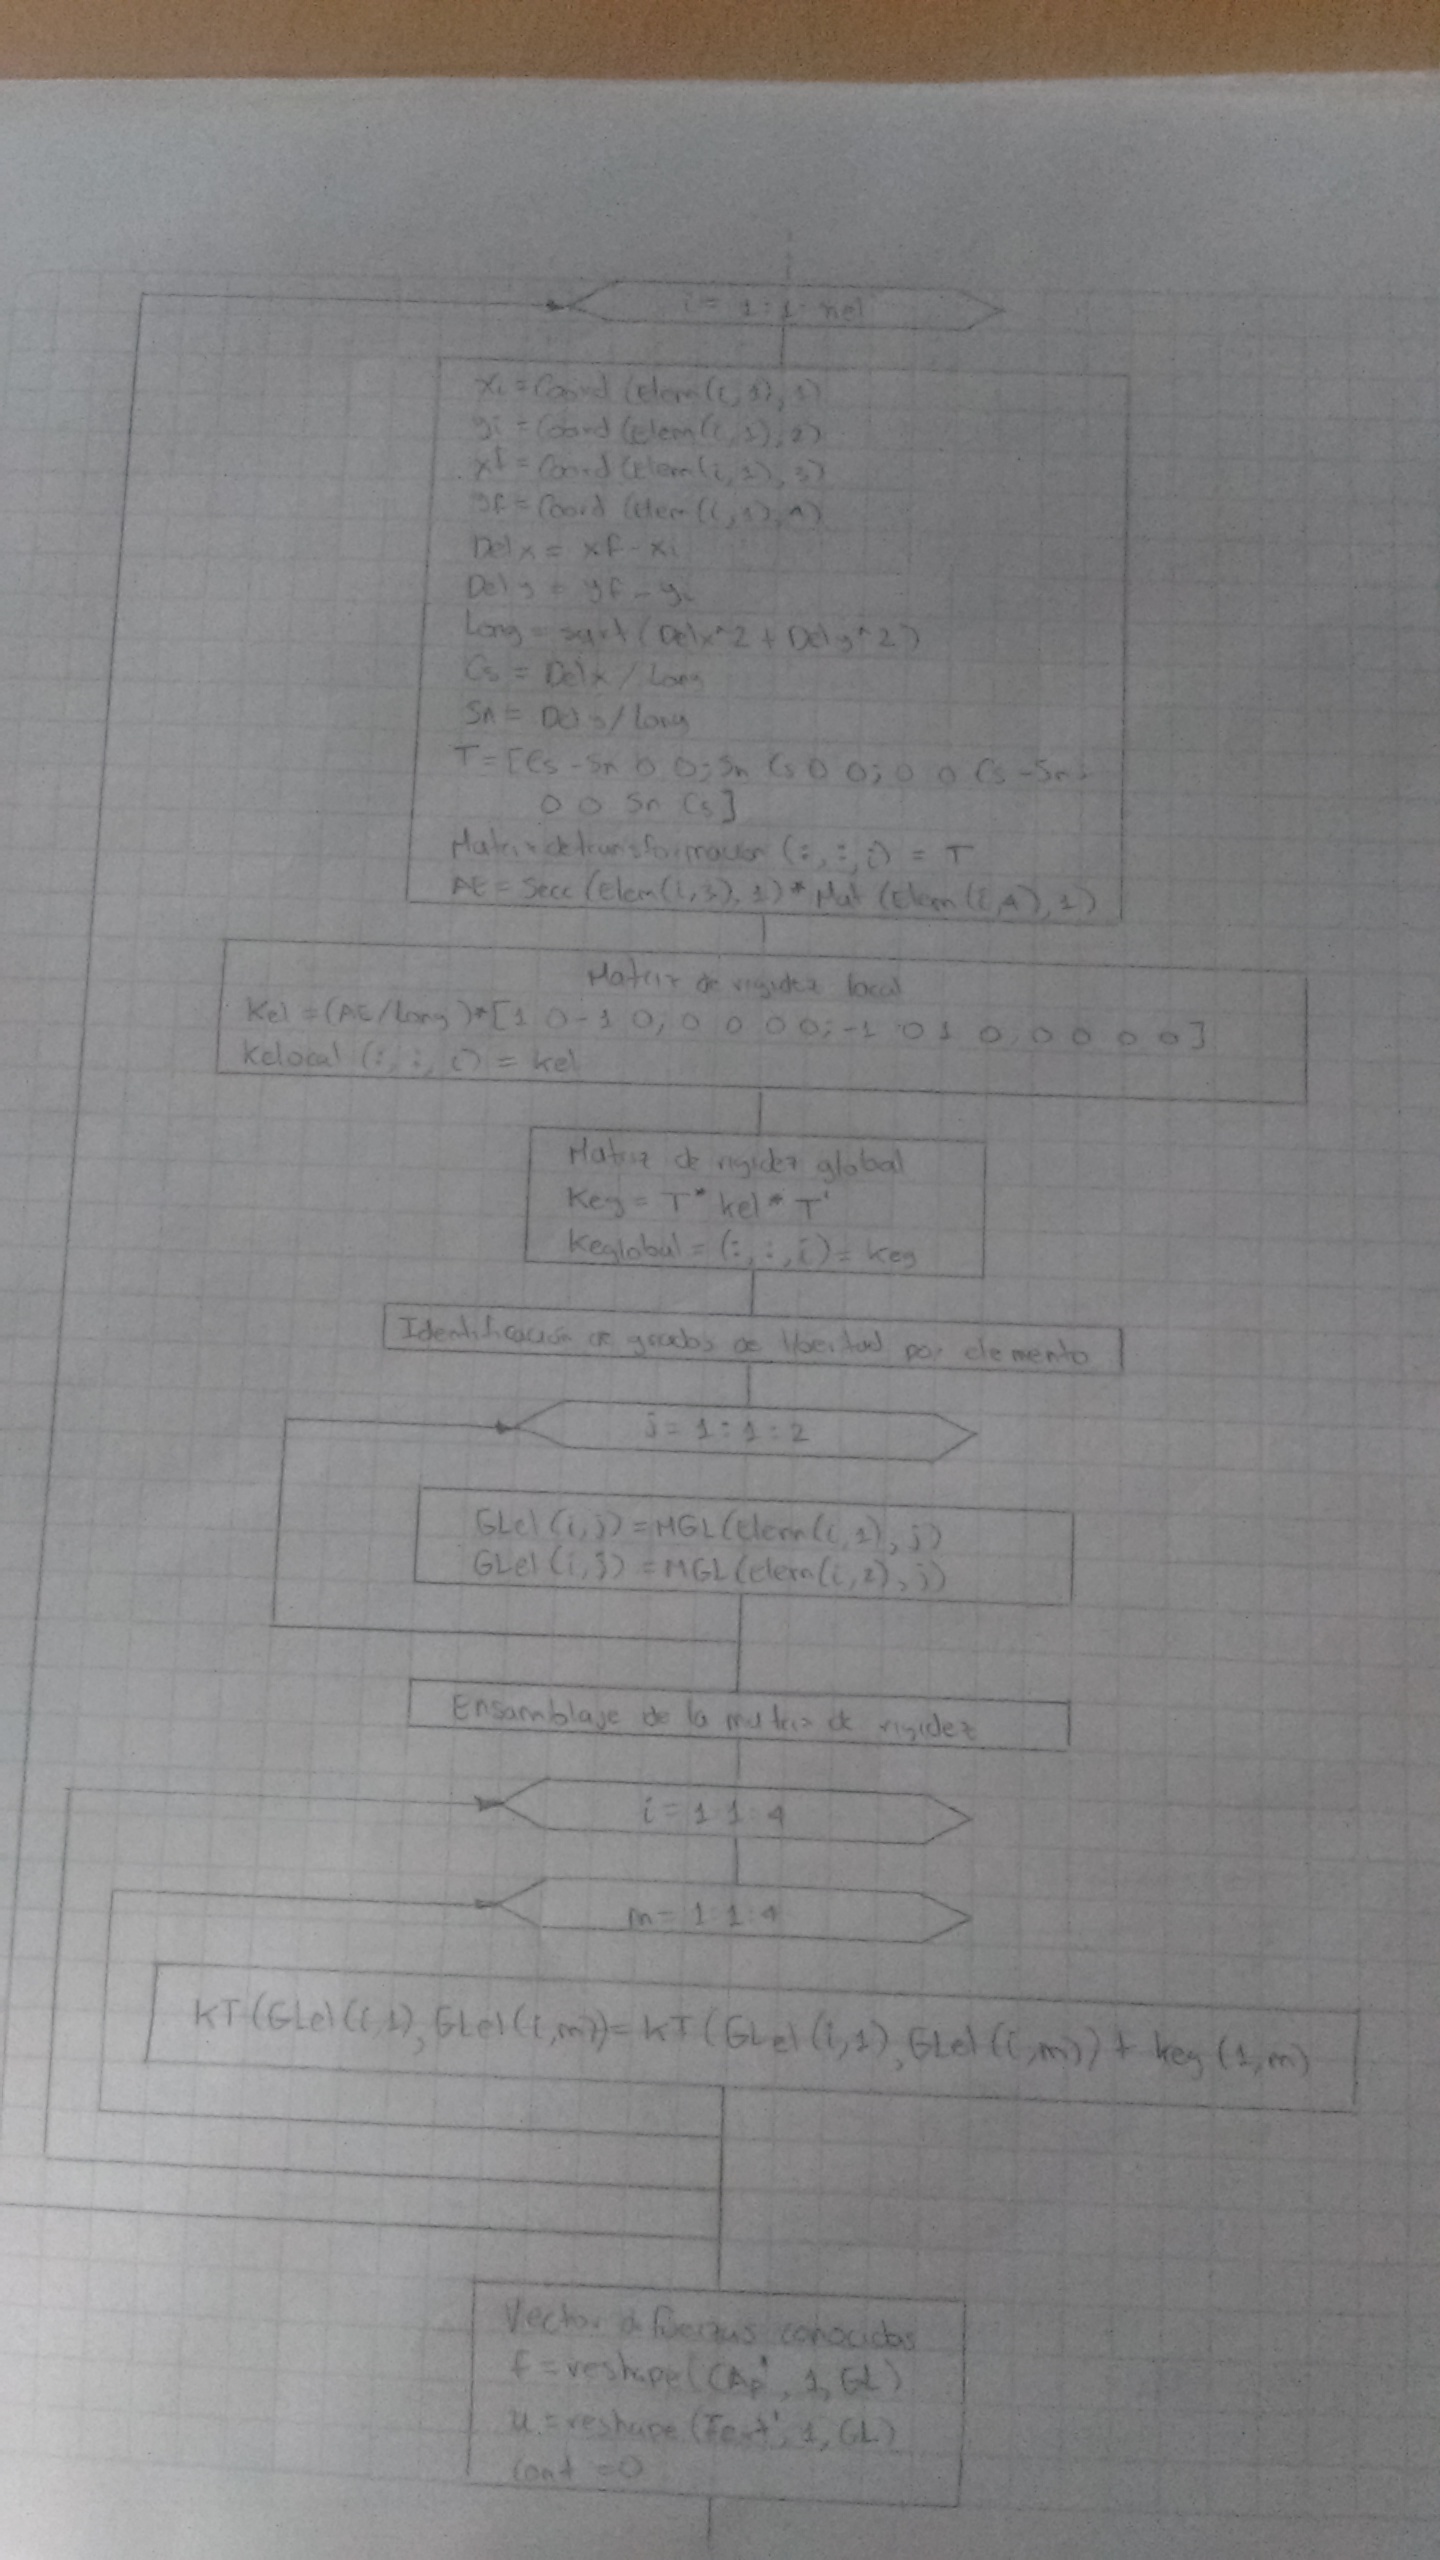 i = 1:1:nel
xi = Coord (Elem(i,1),1)
yi = Coord (Elem(i,1),2)
xf = Coord (Elem(i,1),3)
yf = Coord (Elem(i,1),4)
Delx = xf - xi
Dely = yf - yi
Long = sqrt (Delx^2 + Dely^2)
Cs = Delx / Long
Sn = Dely / Long
T = [Cs -Sn 0 0; Sn Cs 0 0; 0 0 Cs -Sn;
0 0 Sn Cs]
Matriz de transformación (:,:,i) = T
AE = Secc (Elem(i,3),1) * Mat (Elem(i,4),1)
Matriz de rigidez local
Kel = (AE/Long)*[1 0 -1 0; 0 0 0 0; -1 0 1 0; 0 0 0 0]
Kelocal (:,:,i) = kel
Matriz de rigidez global
Keg = T* kel * T'
Keglobal = (:,:,i) = keg
Identificación de grados de libertad por elemento
j = 1:1:2
GLel (i,j) = MGL(elem(i,1),j)
GLel (i,j) = MGL(elem(i,2),j)
Ensamblaje de la matriz de rigidez
i = 1:1:4
m = 1:1:4
KT(GLel(i,1),GLel(i,m)) = KT(GLel(i,1),GLel(i,m)) + keg (1,m)
Vector de fuerzas conocidas
f = reshape (CAp', 1, GL)
u = reshape (Test', 1, GL)
cont = 0